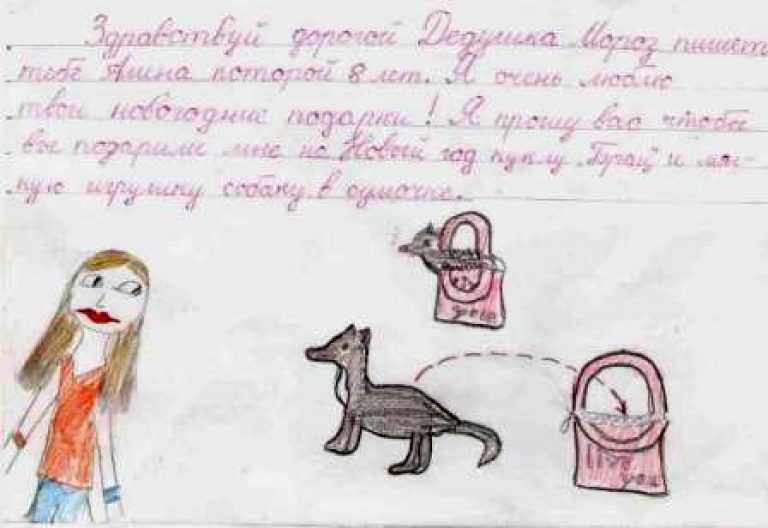 Здравствуй дорогой Дедушка Мороз пишет
тебе Алина которой 8 лет. Я очень люблю
твои новогодние подарки! Я прошу вас чтобы
вы подарили мне на Новый год куклу и мяг-
кую игрушку собаку в сумочке.
love
you